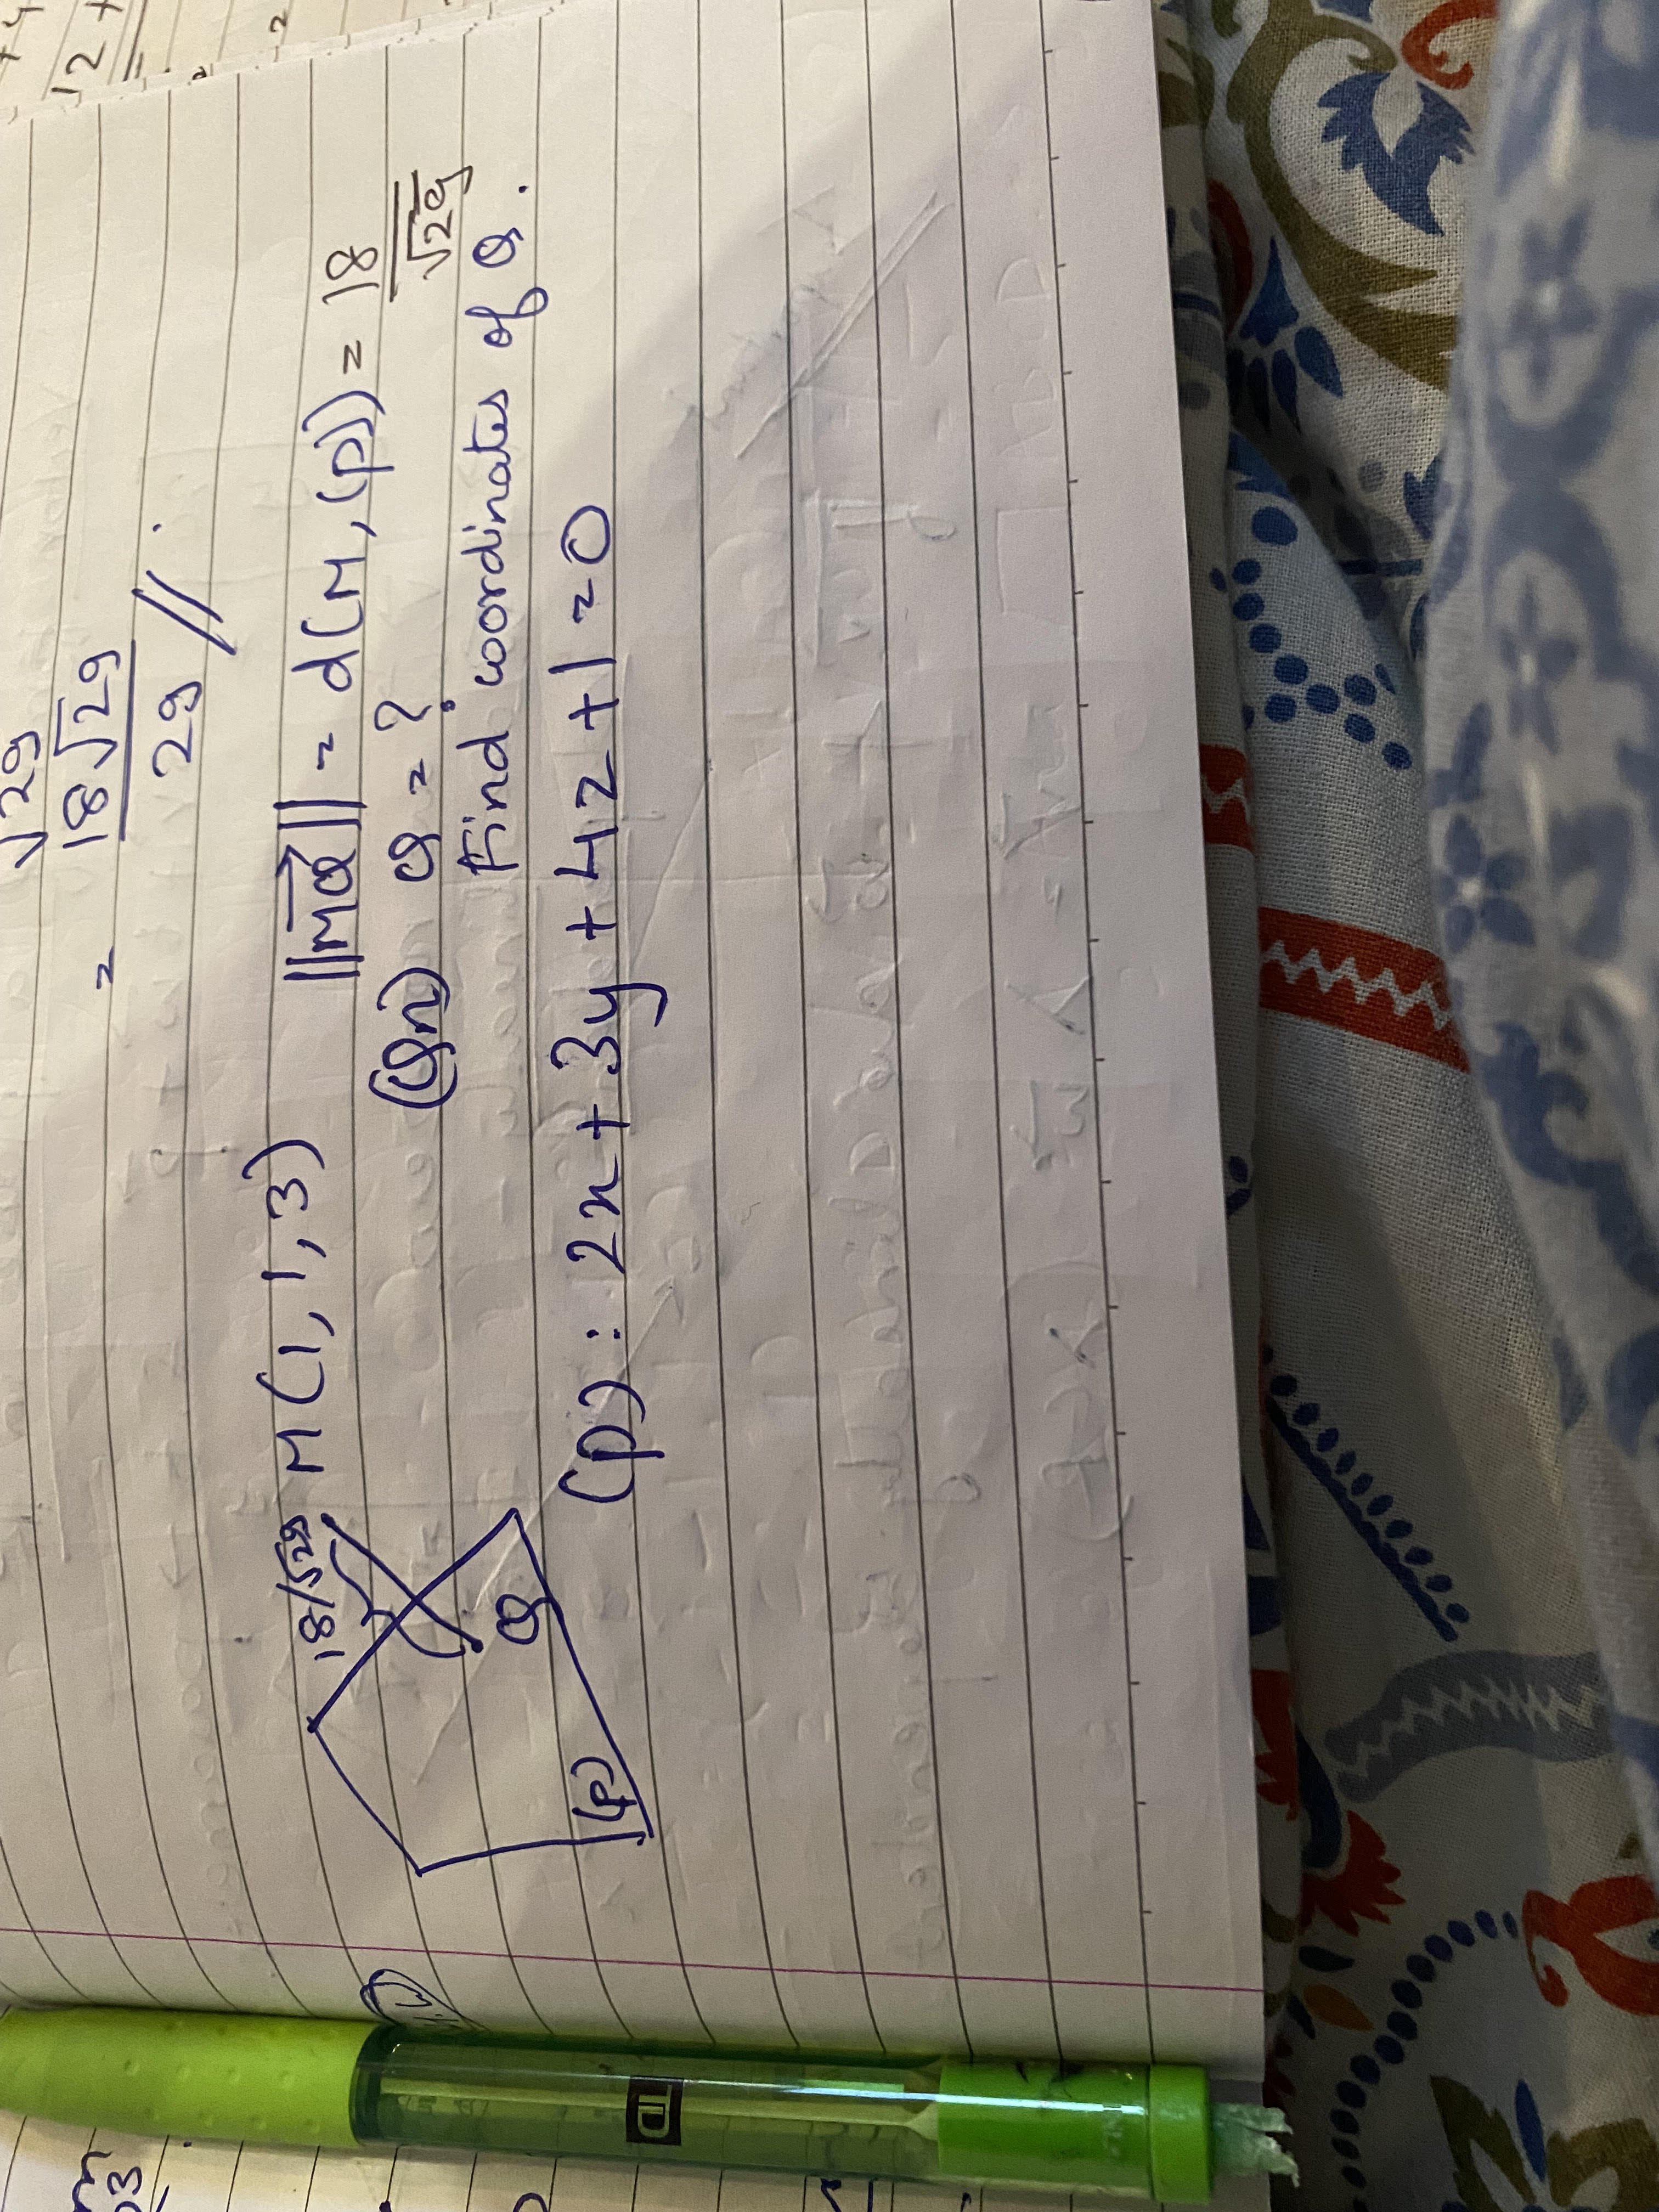 √29
= 18√29
29 //
18/√29 M(1,1,3) ||MQ|| = d(M,(p)) = 18
√29
(Qn) Q = ?
Find coordinates of Q.
Q
(p) : 2x + 3y + 4z + 1 = 0
(p)
TD